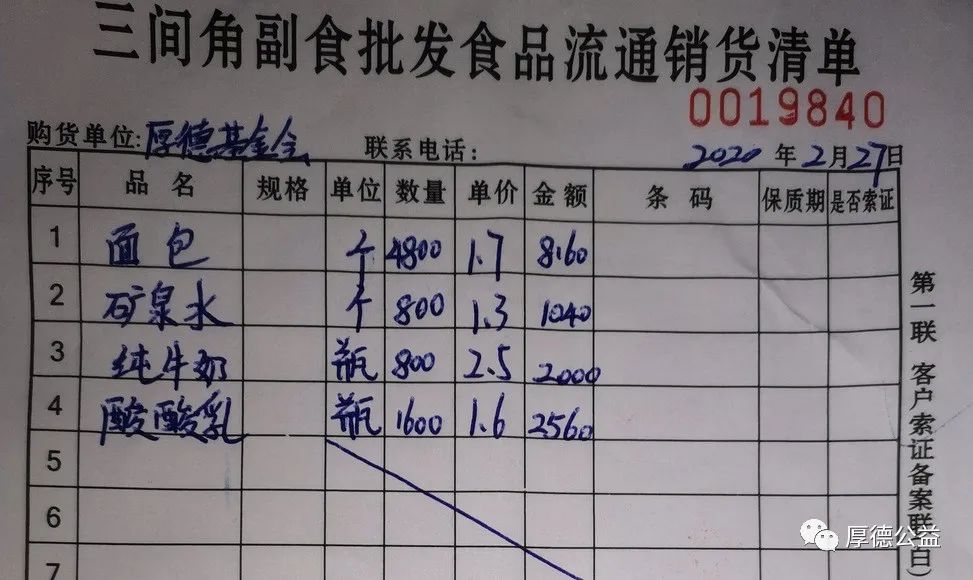 三间角副食批发食品流通销货清单
0019840
购货单位:厚德基金会 联系电话: 2020 年 2 月 27 日
序号 品名 规格 单位 数量 单价 金额 条码 保质期 是否索证
1 面包 个 4800 1.7 8160
2 矿泉水 个 800 1.3 1040
3 纯牛奶 瓶 800 2.5 2000
4 酸酸乳 瓶 1600 1.6 2560
5
6
7
第一联 客户索证备案联(白)
厚德公益